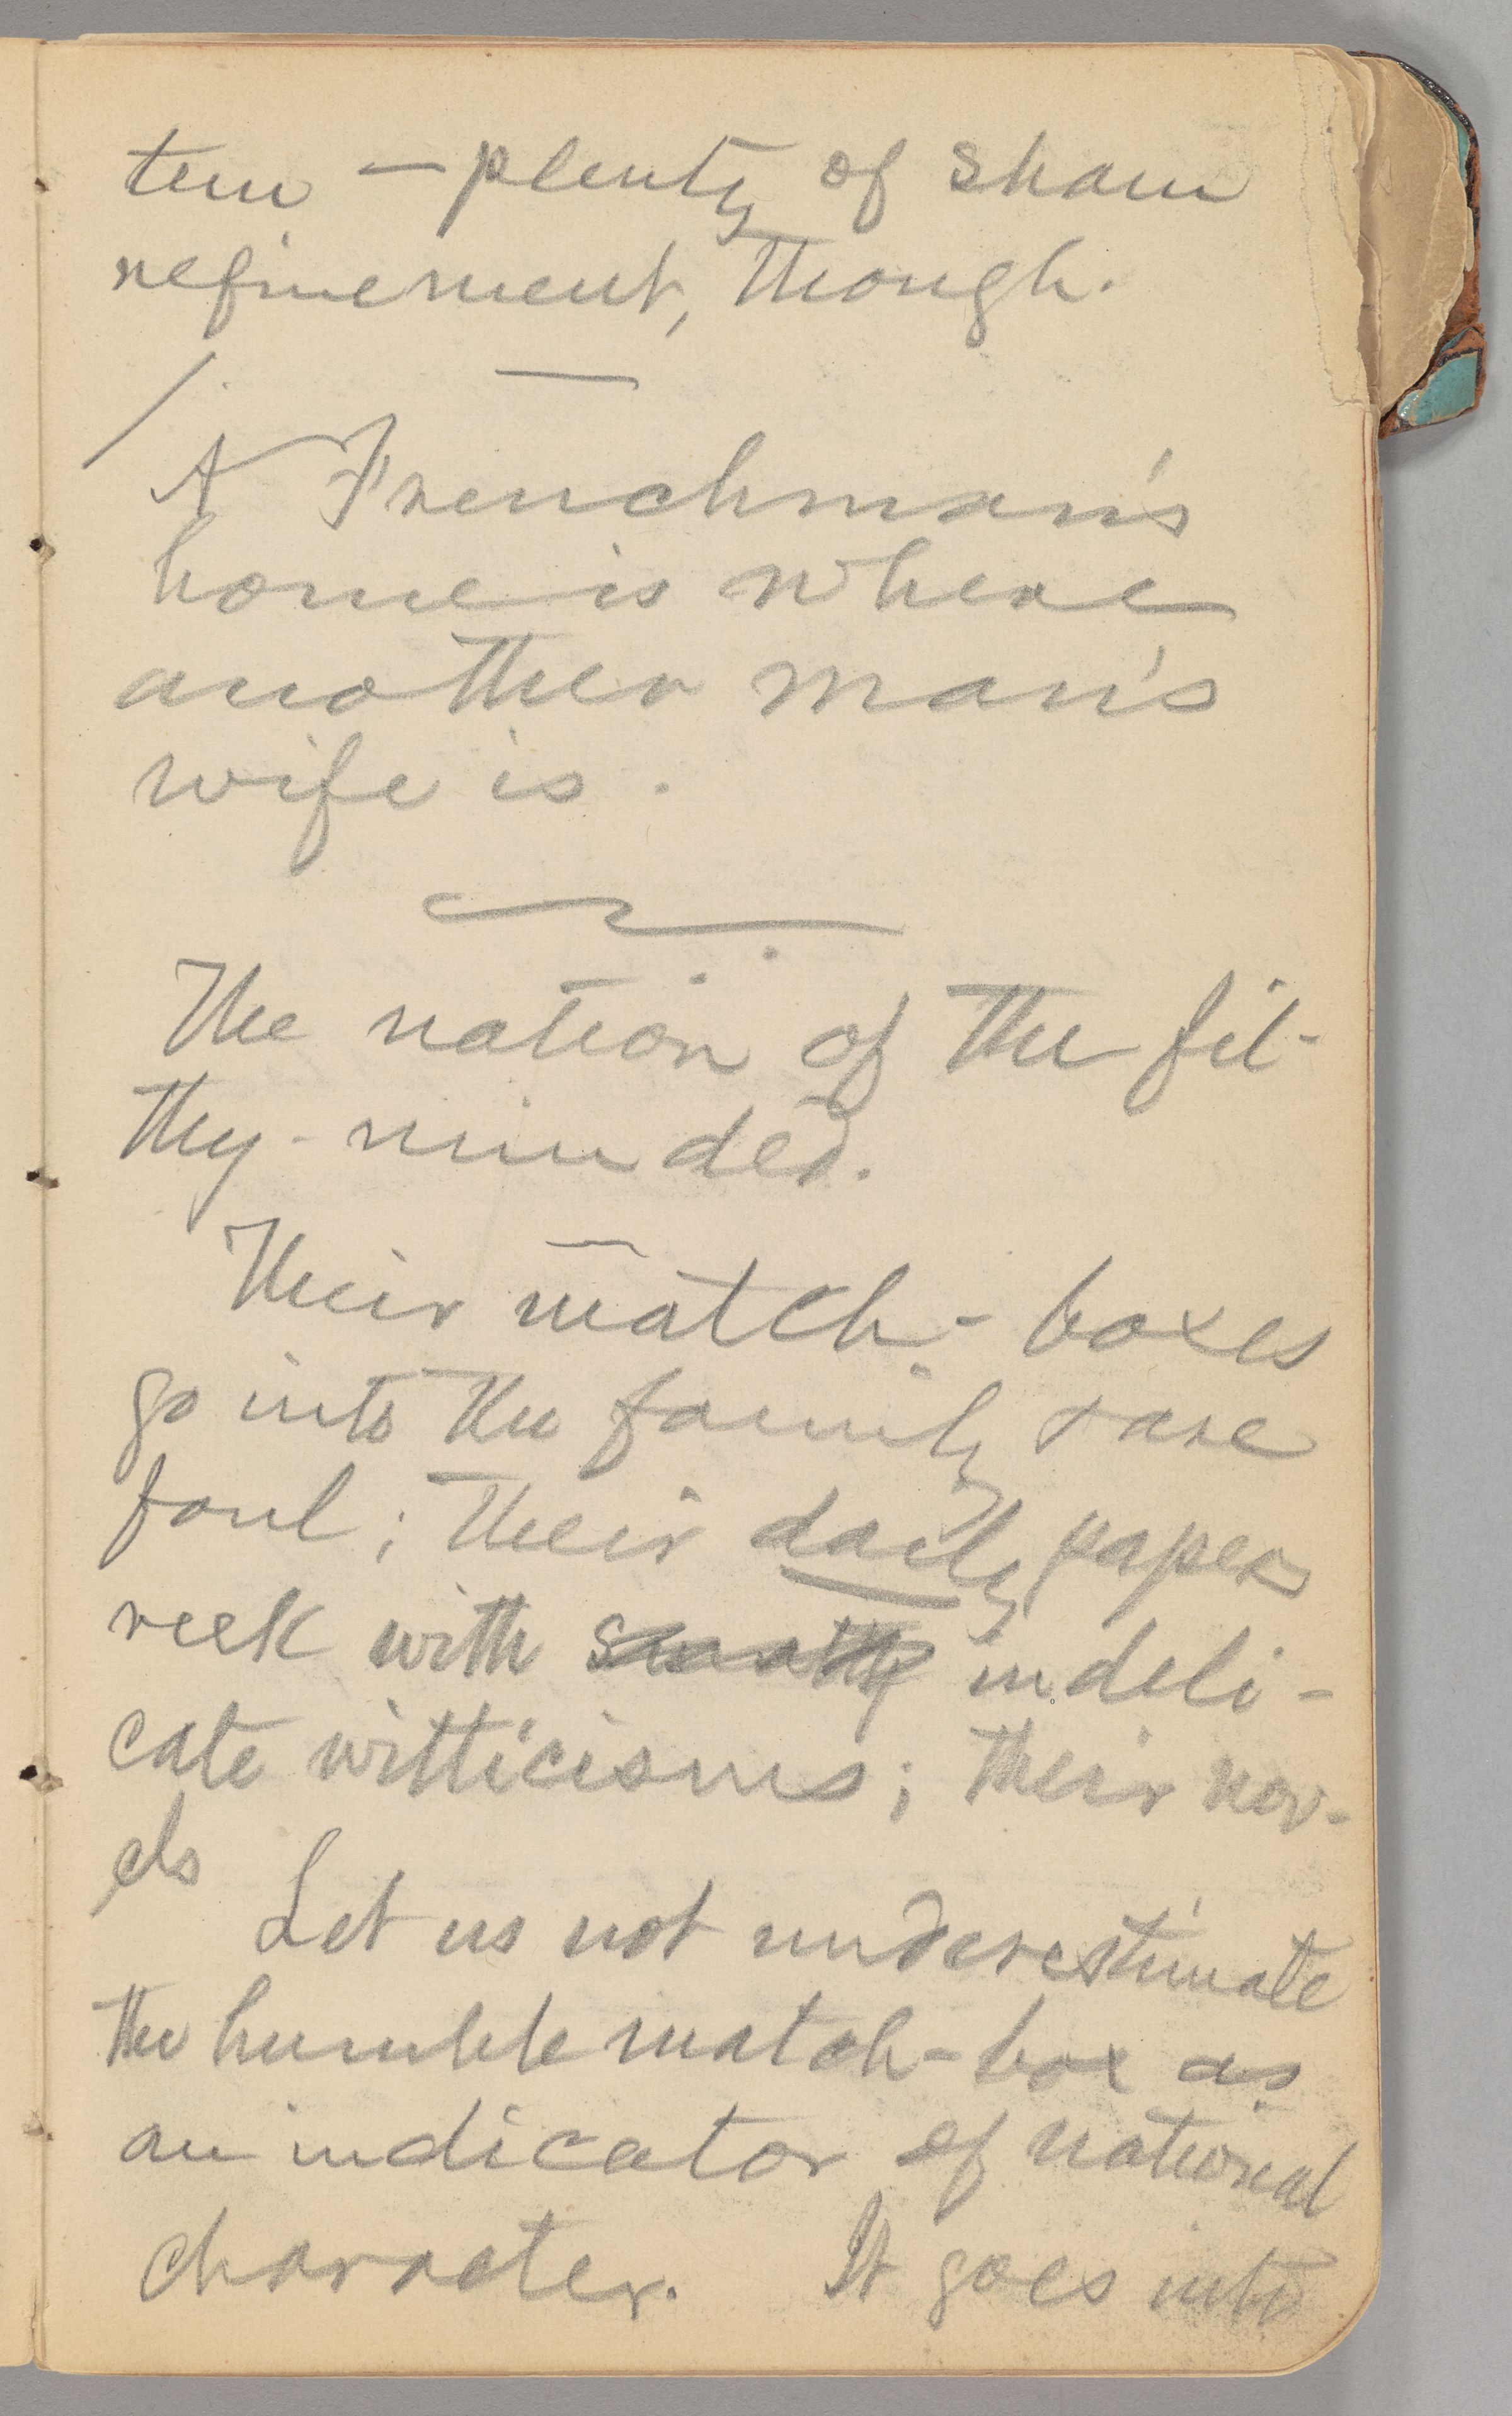 tem — plenty of sham
refinement, though.
A Frenchman's
home is where
another man's
wife is.
The nation of the fil-
thy-minded.
Their match-boxes
go into the family & are
foul; their daily papers
reek with indeli-
cate witticisms; their nov-
els
Let us not underestimate
the humble match-box as
an indicator of national
character. It goes into